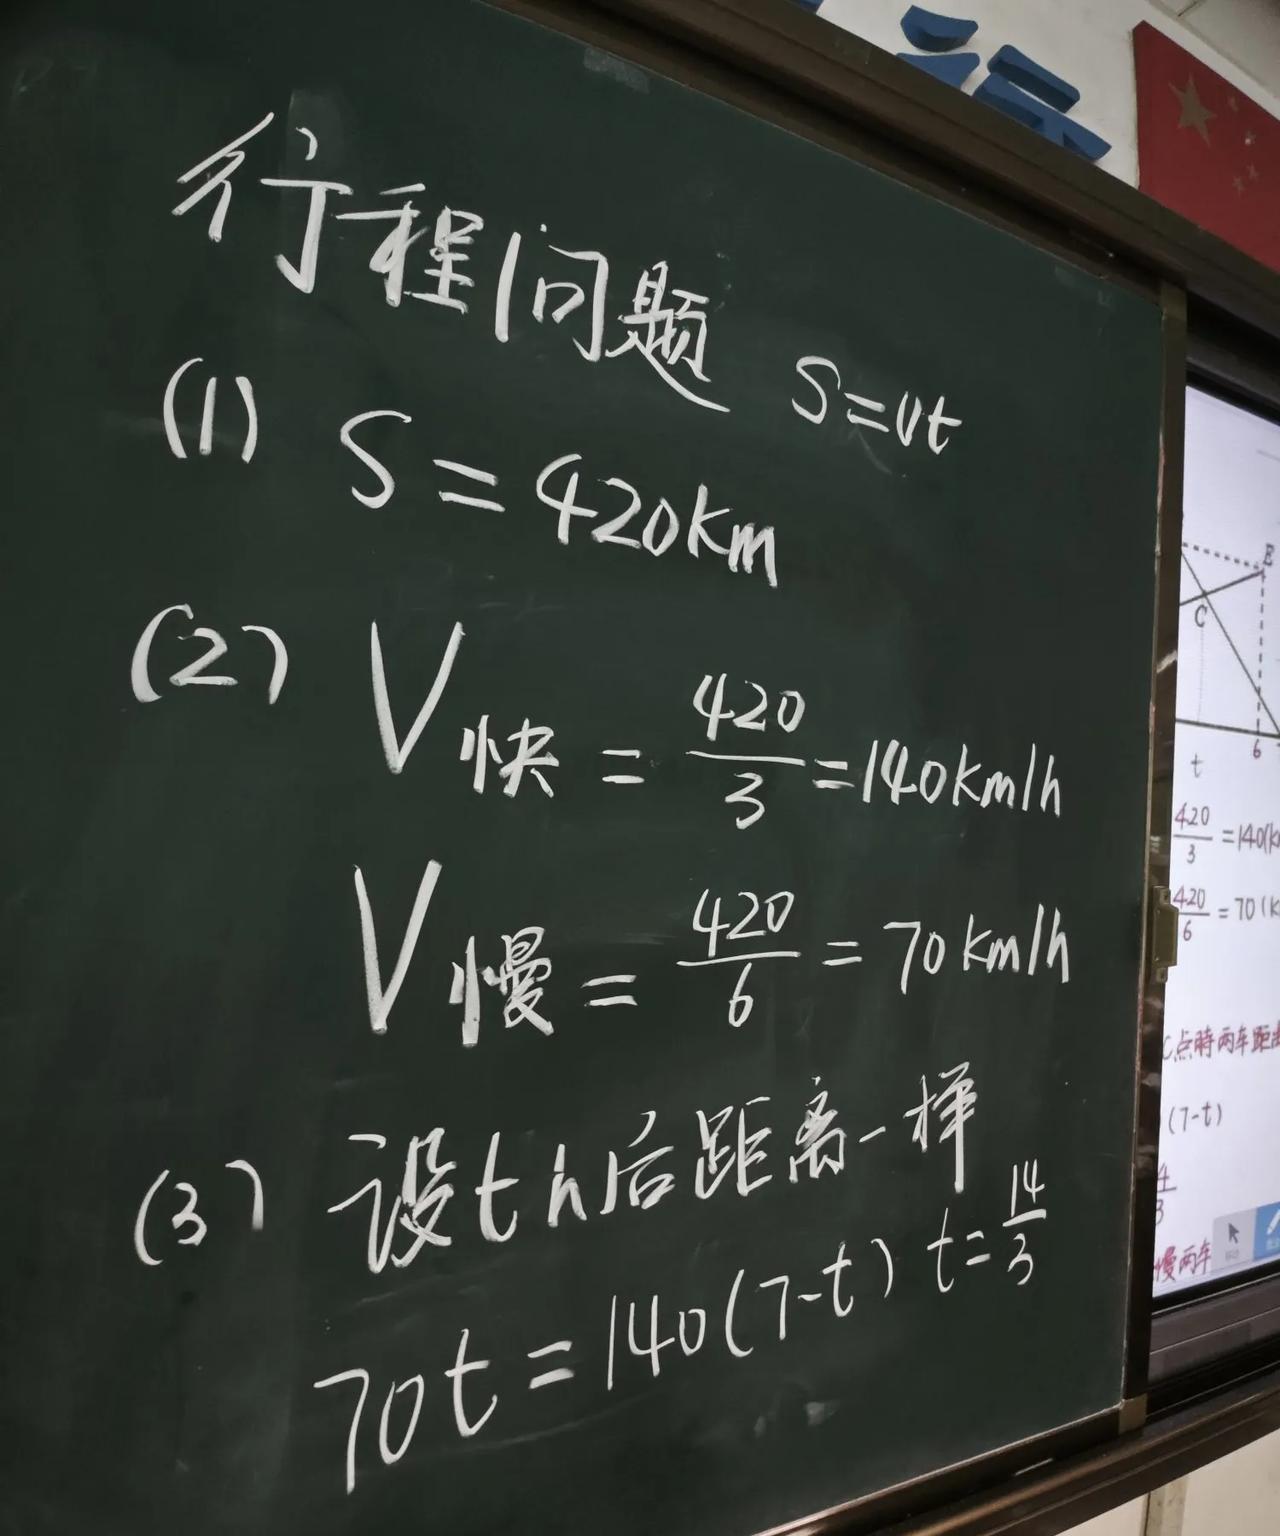 行程问题 S=vt
(1) S=420km
(2) V快=420/3=140km/h
V慢=420/6=70km/h
(3) 设th后距离一样
70t=140(7-t) t=14/3
E
C
t
6
420/3=140(k
420/6=70(k
C点時两车距
(7-t)
慢两车